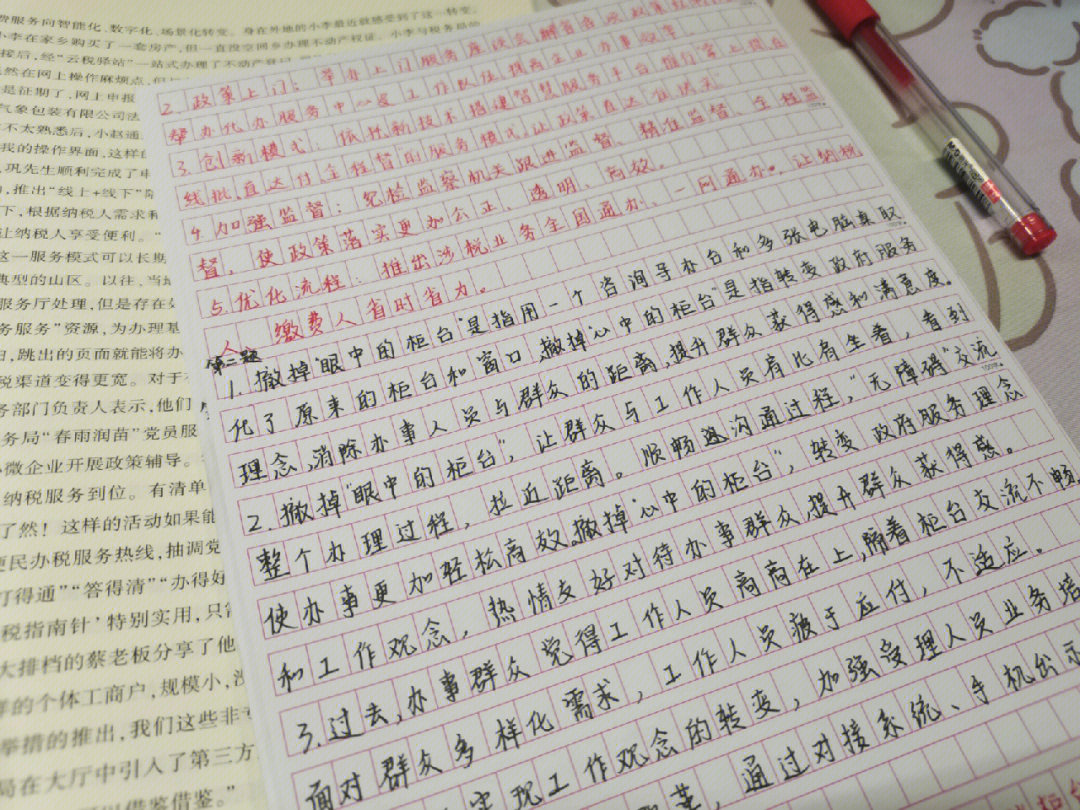 费服务向智能化、数字化、场景化转变。身在外地的小李最近敏感受到了这一转变。
小李在家乡购买了一套房产,但一直没空回乡办理不动产权证。小李与税务局的
接后,经“云税驿站”一站式办理了不动产登记
然在网上操作麻烦点,但
是征期了,网上申报
气象包装有限公司法
不太熟悉后,小赵通
我的操作界面,这样
巩先生顺利完成了申
,推出“线上+线下”
下,根据纳税人需求和
让纳税人享受便利。”
这一服务模式可以长期
典型的山区。以往,当地
服务厅处理,但是存在处
务服务”资源,为办理基
日,跳出的页面就能将办
税渠道变得更宽。对于
务部门负责人表示,他们
务局“春雨润苗”党员服
小微企业开展政策辅导。
纳税服务到位。有清单
了然!这样的活动如果能
便民办税服务热线,抽调党
打得通”“答得清”“办得好
税指南针’特别实用,只需
大排档的蔡老板分享了他
样的个体工商户,规模小,没
举措的推出,我们这些非
局在大厅中引入了第三方
可以借鉴借鉴。”
2.政策上门:举办上门服务座谈会,解答惠企政策
帮办代办服务中心及工作队伍,提高企业办事效率。
3.创新模式:依托新技术搭建智慧服务平台,推行“掌上提在
线批直达付全程督”的服务模式,让政策在达“在快实”
4.加强监督:纪检监察机关跟进监督、精准监督、全程监
督,使政策落实更加公正、透明、高效。
5.优化流程:推出涉税业务全国通办、一网通办。让纳税
人、缴费人省时省力。
第二题
1.撤掉“眼中的柜台”是指用一个咨询导办台和多张电脑桌取
化了原来的柜台和窗口,撤掉“心中的柜台”是指转变政府服务
理念,消除办事人员与群众的距离,提升群众获得感和满意度。
2.撤掉“眼中的柜台”,让群众与工作人员肩比肩坐看,看到
整个办理过程,拉近距离。顺畅沟通过程,“无障碍”交流
使办事更加轻松高效。撤掉“心中的柜台”,转变政府服务理念
和工作观念,热情友好对待办事群众,提升群众获得感。
3.过去,办事群众觉得工作人员高高在上,隔着柜台交流不畅,
面对群众多样化需求,工作人员疲于应付,不适应。
实现工作观念的转变,加强受理人员业务培
革,通过对接系统、手机出示